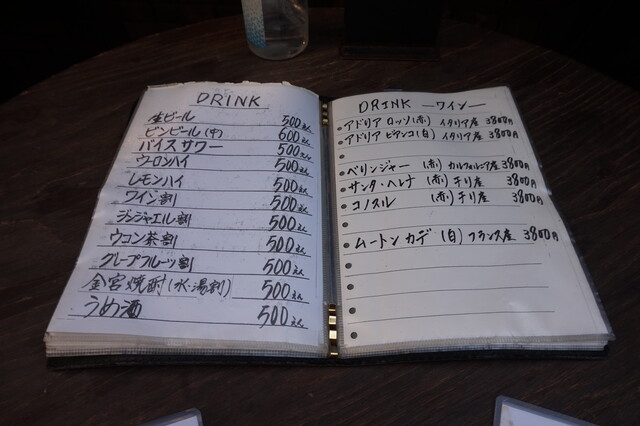 DRINK
生ビール 500えん
ビンビール(中) 600えん
バイスサワー 500えん
ウーロンハイ 500えん
レモンハイ 500えん
ワイン割 500えん
ジンジャエル割 500えん
ウコン茶割 500えん
グレープフルーツ割 500えん
金宮焼酎(水・湯割) 500えん
うめ酒 500えん
DRINK —ワイン—
アドリア ロッソ(赤) イタリア産 3800円
アドリア ビアンコ(白) イタリア産 3800円
ベリンジャー (赤) カルフォルニア産 3800円
サンタ・ヘレナ (赤) チリ産 3800円
コノスル (赤) チリ産 3800円
ムートン カデ (白) フランス産 3800円